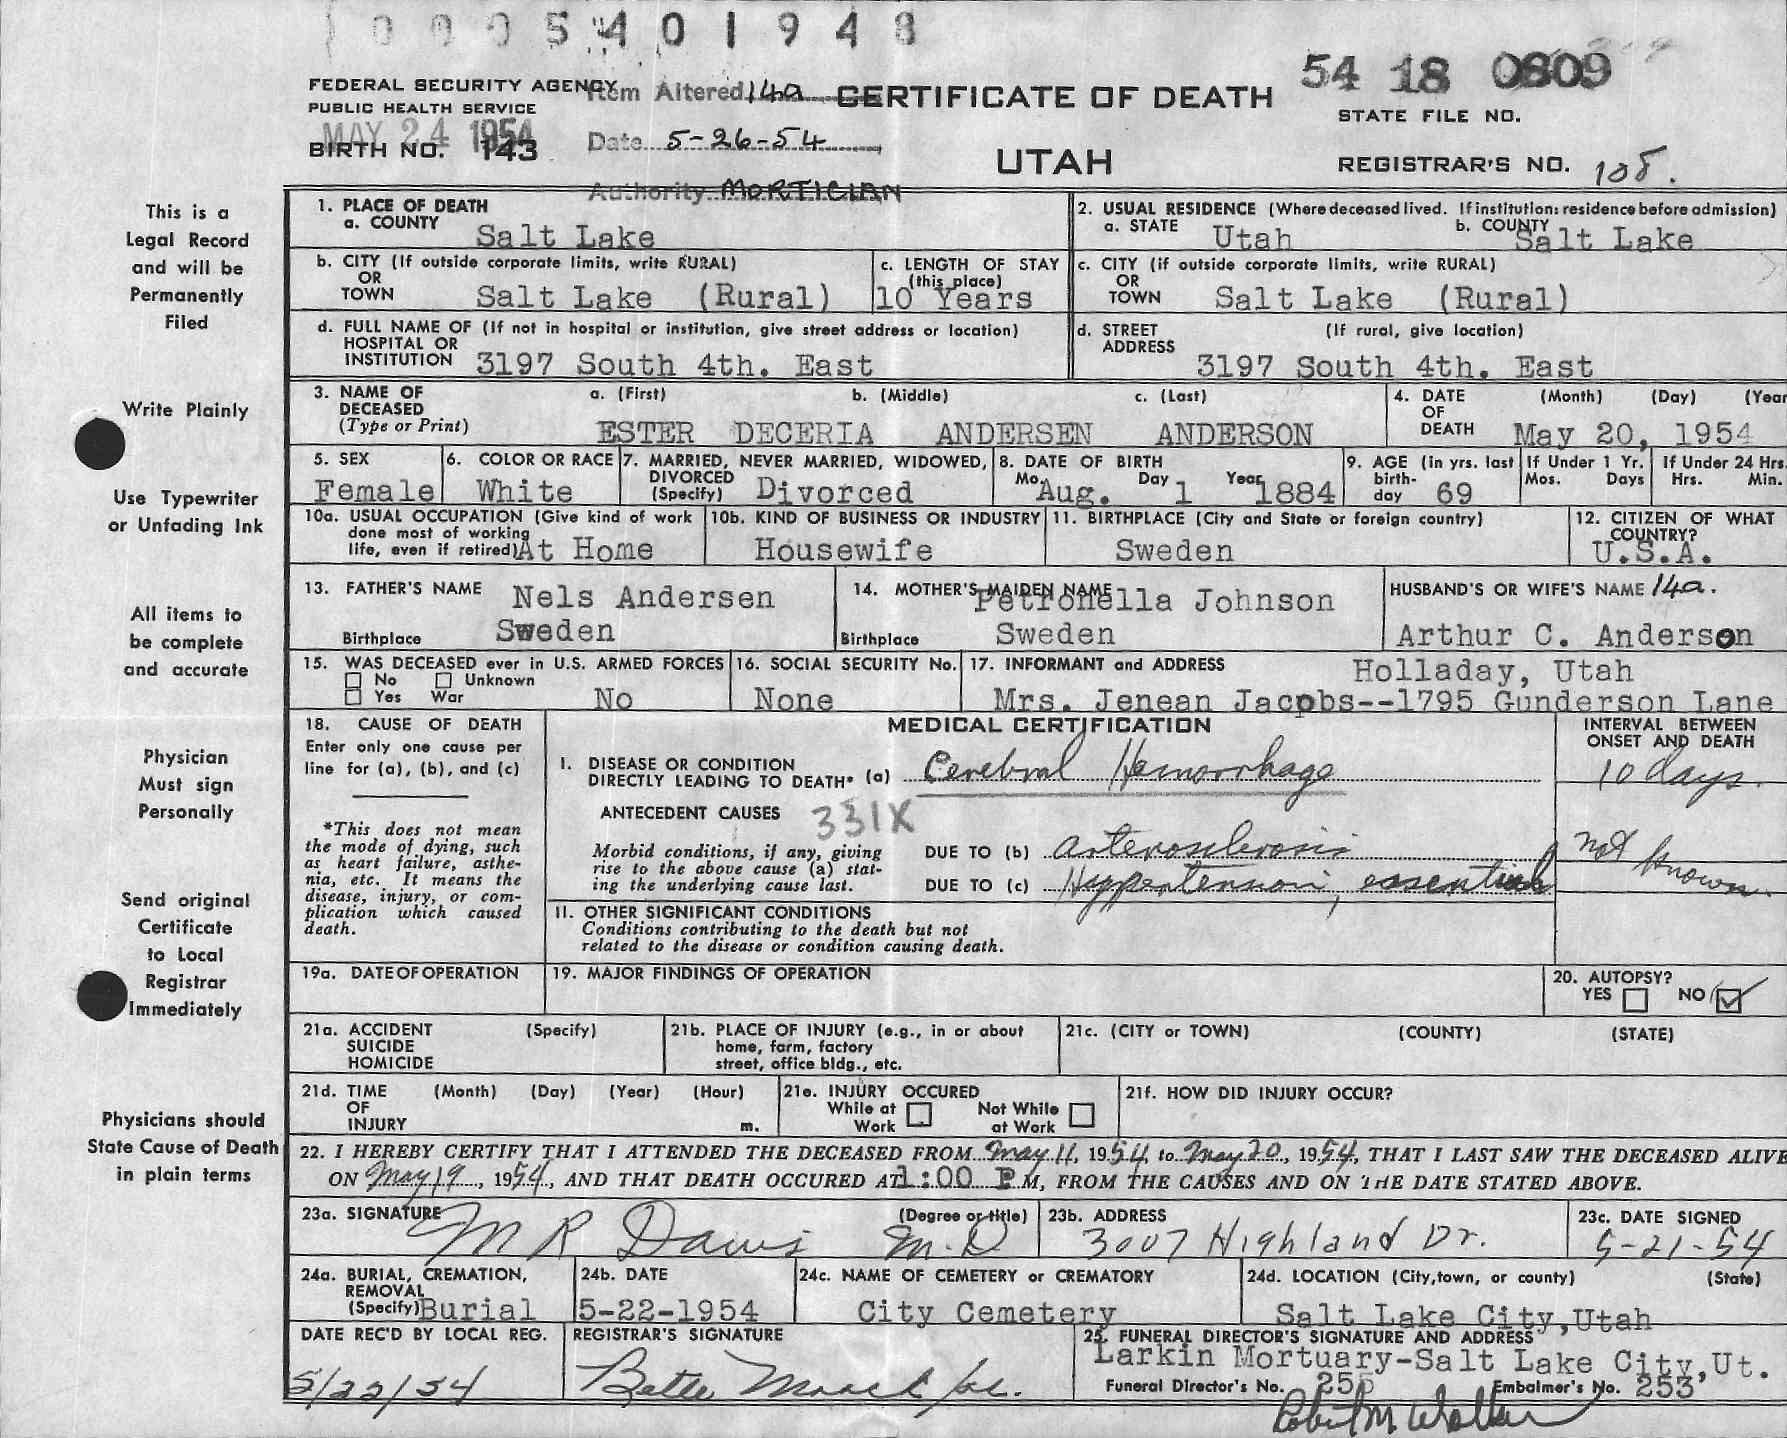 0 0 0 5 4 0 1 9 4 8
54 18 0809
FEDERAL SECURITY AGENCY
PUBLIC HEALTH SERVICE
Item Altered 14a
CERTIFICATE OF DEATH
STATE FILE NO.
MAY 24 1954
BIRTH NO. 143
Date 5-26-54
UTAH
REGISTRAR'S NO. 108.
Authority MORTICIAN
This is a
Legal Record
and will be
Permanently
Filed
Write Plainly
Use Typewriter
or Unfading Ink
All items to
be complete
and accurate
Physician
Must sign
Personally
Send original
Certificate
to Local
Registrar
Immediately
Physicians should
State Cause of Death
in plain terms
1. PLACE OF DEATH
a. COUNTY Salt Lake
2. USUAL RESIDENCE (Where deceased lived. If institution: residence before admission)
a. STATE Utah b. COUNTY Salt Lake
b. CITY (If outside corporate limits, write RURAL)
OR
TOWN Salt Lake (Rural)
c. LENGTH OF STAY
(this place)
10 Years
c. CITY (if outside corporate limits, write RURAL)
OR
TOWN Salt Lake (Rural)
d. FULL NAME OF (If not in hospital or institution, give street address or location)
HOSPITAL OR
INSTITUTION 3197 South 4th. East
d. STREET (If rural, give location)
ADDRESS
3197 South 4th. East
3. NAME OF a. (First) b. (Middle) c. (Last)
DECEASED
(Type or Print) ESTER DECERIA ANDERSEN ANDERSON
4. DATE (Month) (Day) (Year
OF
DEATH May 20, 1954
5. SEX
Female
6. COLOR OR RACE
White
7. MARRIED, NEVER MARRIED, WIDOWED,
DIVORCED
(Specify) Divorced
8. DATE OF BIRTH
Mo. Aug. Day 1 Year 1884
9. AGE (in yrs. last
birth-
day 69
If Under 1 Yr.
Mos. Days
If Under 24 Hrs.
Hrs. Min.
10a. USUAL OCCUPATION (Give kind of work
done most of working
life, even if retired) At Home
10b. KIND OF BUSINESS OR INDUSTRY
Housewife
11. BIRTHPLACE (City and State or foreign country)
Sweden
12. CITIZEN OF WHAT
COUNTRY?
U.S.A.
13. FATHER'S NAME Nels Andersen
Birthplace Sweden
14. MOTHER'S MAIDEN NAME Petronella Johnson
Birthplace Sweden
HUSBAND'S OR WIFE'S NAME 14a.
Arthur C. Anderson
15. WAS DECEASED ever in U.S. ARMED FORCES
No Unknown
Yes War No
16. SOCIAL SECURITY No.
None
17. INFORMANT and ADDRESS Holladay, Utah
Mrs. Jenean Jacobs--1795 Gunderson Lane
18. CAUSE OF DEATH
Enter only one cause per
line for (a), (b), and (c)
*This does not mean
the mode of dying, such
as heart failure, asthe-
nia, etc. It means the
disease, injury, or com-
plication which caused
death.
MEDICAL CERTIFICATION
INTERVAL BETWEEN
ONSET AND DEATH
I. DISEASE OR CONDITION
DIRECTLY LEADING TO DEATH* (a) Cerebral Hemorrhage 10 days.
ANTECEDENT CAUSES 331X
Morbid conditions, if any, giving
rise to the above cause (a) stat-
ing the underlying cause last.
DUE TO (b) Arterosclerosis
DUE TO (c) Hypertension, essential
not known.
II. OTHER SIGNIFICANT CONDITIONS
Conditions contributing to the death but not
related to the disease or condition causing death.
19a. DATE OF OPERATION
19. MAJOR FINDINGS OF OPERATION
20. AUTOPSY?
YES NO
21a. ACCIDENT (Specify)
SUICIDE
HOMICIDE
21b. PLACE OF INJURY (e.g., in or about
home, farm, factory
street, office bldg., etc.
21c. (CITY or TOWN) (COUNTY) (STATE)
21d. TIME (Month) (Day) (Year) (Hour)
OF
INJURY m.
21e. INJURY OCCURED
While at Not While
Work at Work
21f. HOW DID INJURY OCCUR?
22. I HEREBY CERTIFY THAT I ATTENDED THE DECEASED FROM May 11, 1954, to May 20, 1954, THAT I LAST SAW THE DECEASED ALIVE
ON May 19, 1954, AND THAT DEATH OCCURED AT 1:00 P M, FROM THE CAUSES AND ON THE DATE STATED ABOVE.
23a. SIGNATURE (Degree or title)
M R Davis M.D
23b. ADDRESS
3007 Highland Dr.
23c. DATE SIGNED
5-21-54
24a. BURIAL, CREMATION,
REMOVAL
(Specify) Burial
24b. DATE
5-22-1954
24c. NAME OF CEMETERY or CREMATORY
City Cemetery
24d. LOCATION (City, town, or county) (State)
Salt Lake City, Utah
DATE REC'D BY LOCAL REG.
5/22/54
REGISTRAR'S SIGNATURE
25. FUNERAL DIRECTOR'S SIGNATURE AND ADDRESS
Larkin Mortuary-Salt Lake City, Ut.
Funeral Director's No. 255 Embalmer's No. 253